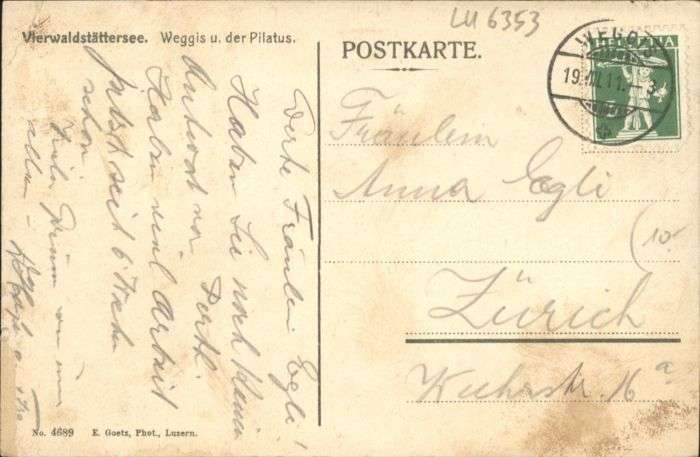 LU 6353
Vierwaldstättersee. Weggis u. der Pilatus.
POSTKARTE.
WEGGIS
19. VII. 11. – 3
HELVETIA
Fräulein
Anna Egli
(10.-
Zürich
16 a
Werte Fräulein Egli!
Haben Sie noch keine
Antwort von
Haben viel Arbeit
jetzt seit 6
schon
Viele Grüsse
allen –
No. 4689 E. Goetz, Phot., Luzern.